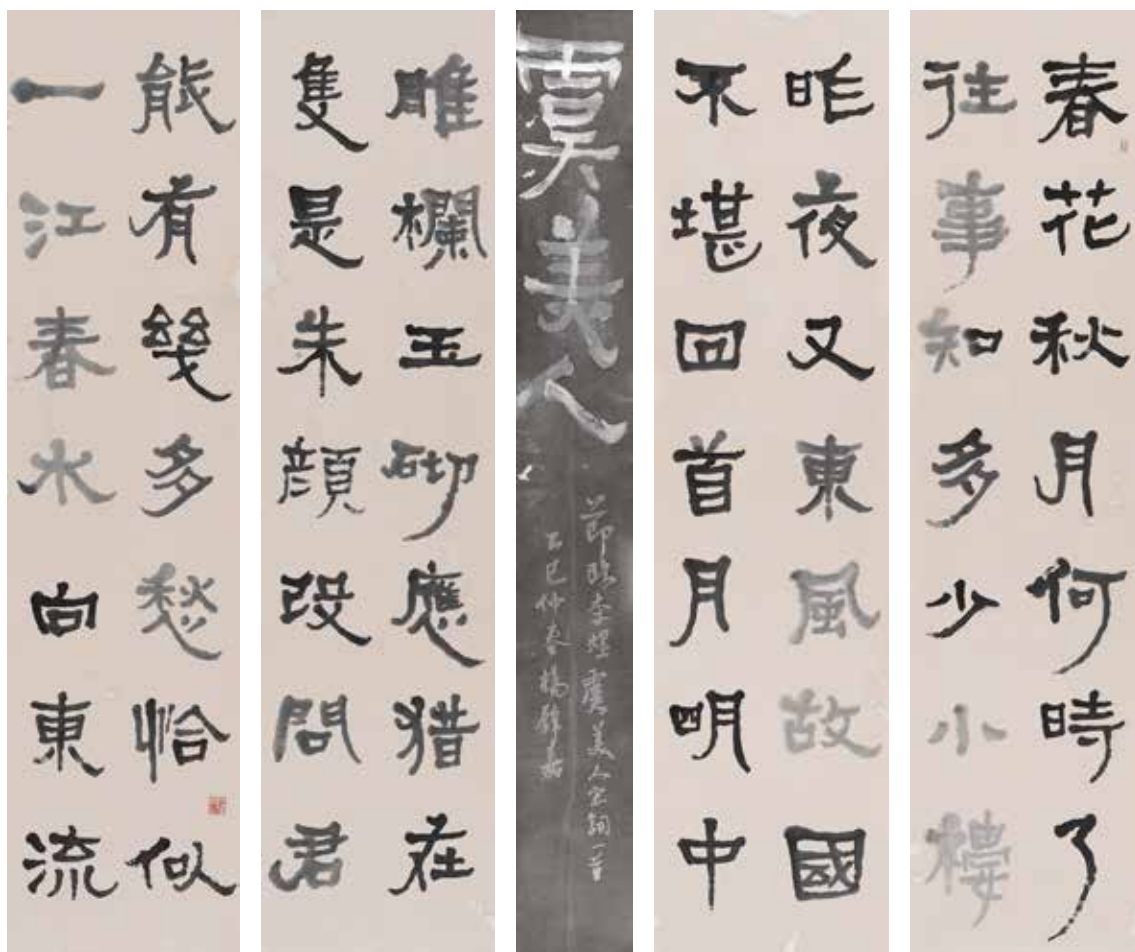 春花秋月何時了
往事知多少小樓
昨夜又東風故國
不堪回首月明中
虞美人
節臨李煜虞美人宋詞一首
乙巳仲春楊錦
雕欄玉砌應猶在
隻是朱顏改問君
能有幾多愁恰似
一江春水向東流